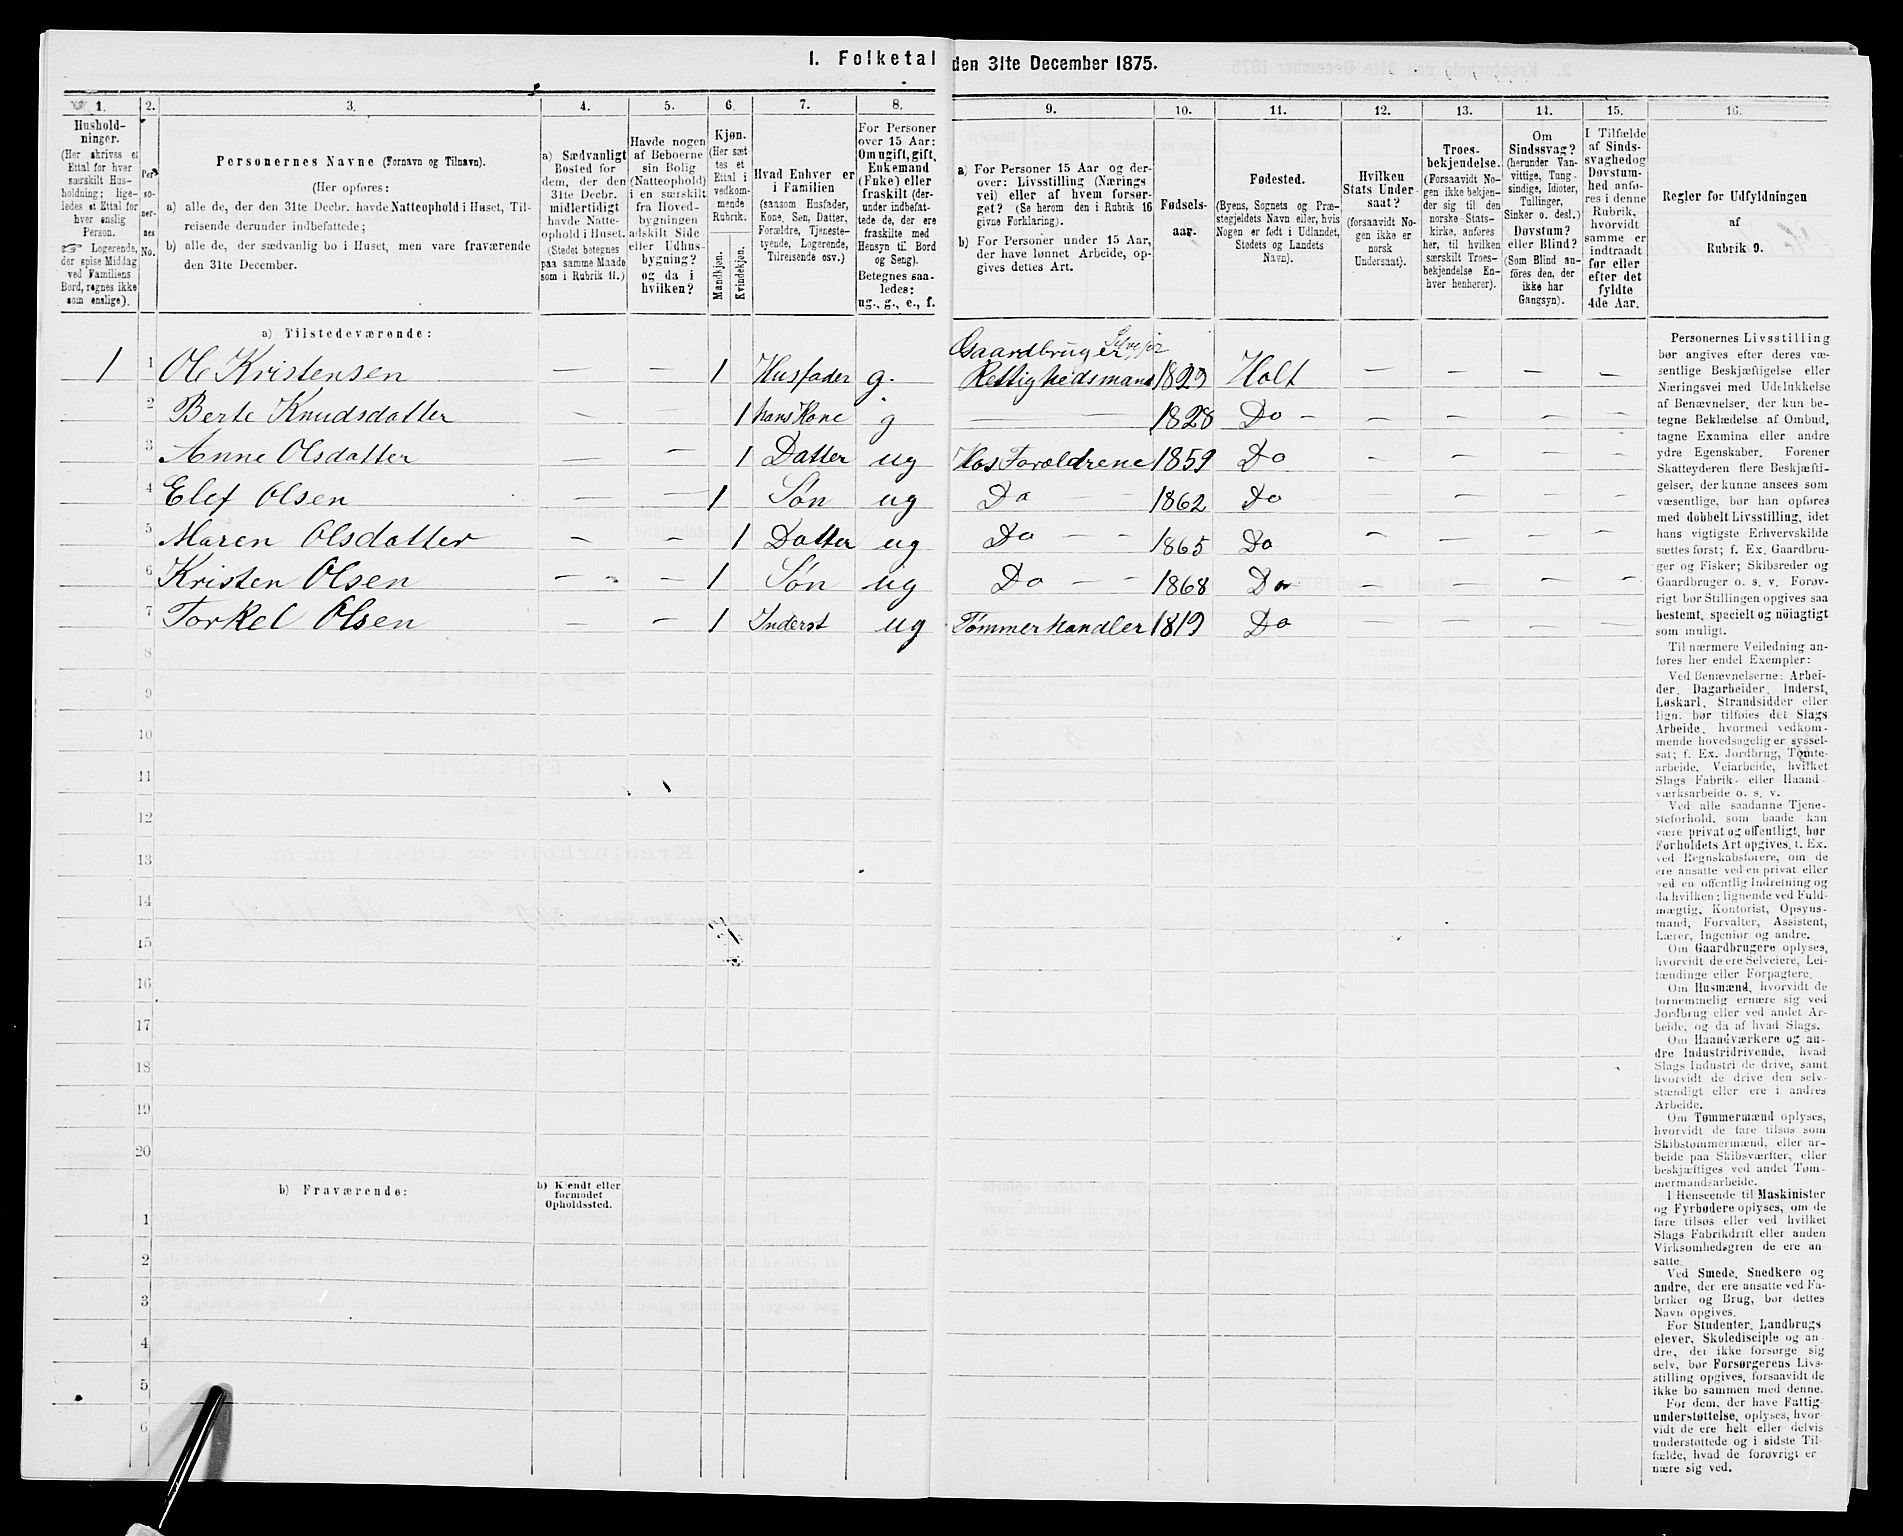 1. Folketal den 31te December 1875.
1. 2. 3. 4. 5. 6. 7. 8. 9. 10. 11. 12. 13. 14. 15. 16.
Hushold-
ninger.
(Her skrives et
Ettal for hver
særskilt Hus-
holdning; lige-
ledes et Ettal for
hver enslig
Person.
☞ Logerende,
der spise Middag
ved Familiens
Bord, regnes ikke
som enslige).
Per-
so-
ner-
nes
No.
Personernes Navne (Fornavn og Tilnavn).
(Her opføres:
a) alle de, der den 31te Decbr. havde Natteophold i Huset, Til-
reisende derunder indbefattede;
b) alle de, der sædvanlig bo i Huset, men vare fraværende
den 31te December.
a) Sædvanligt
Bosted for
dem, der den
31te Decbr.
midlertidigt
havde Natte-
ophold i Huset.
(Stedet betegnes
paa samme Maade
som i Rubrik 11.)
Havde nogen
af Beboerne
sin Bolig
(Natteophold)
i en særskilt
fra Hoved-
bygningen
adskilt Side
eller Udhus-
bygning?
og da i
hvilken?
Kjøn.
(Her sæt
tes et
Ettal i
vedkom-
mende
Rubrik.
Mandkjøn.
Kvindekjøn.
Hvad Enhver er
i Familien
(saasom Husfader,
Kone, Søn, Datter,
Forældre, Tjeneste-
tyende, Logerende,
Tilreisende osv.)
For Personer
over 15 Aar:
Om ugift, gift,
Enkemand
(Enke) eller
fraskilt (der-
under indbefat-
tede de, der ere
fraskilte med
Hensyn til Bord
og Seng).
Betegnes saa-
ledes:
ug., g., e., f.
a) For Personer 15 Aar og der-
over: Livsstilling (Nærings
vei) eller af hvem forsør-
get? (Se herom den i Rubrik 16
givne Forklaring).
b) For Personer under 15 Aar,
der have lønnet Arbeide, op-
gives dettes Art.
Fødsels-
aar.
Fødested.
(Byens, Sognets og Præ-
stegjeldets Navn eller, hvis
Nogen er født i Udlandet,
Stedets og Landets
Navn).
Hvilken
Stats Under-
saat?
(forsaavidt No-
gen ikke er
norsk
Undersaat).
Troes-
bekjendelse.
(Forsaavidt No-
gen ikke bekjen-
der sig til den
norske Stats-
kirke, anføres
her, til hvilken
særskilt Troes-
bekjendelse En-
hver henhører).
Om
Sindssvag?
(herunder Van-
vittige, Tung-
sindige, Idioter,
Tullinger,
Sinker o. desl.)
Døvstum?
eller Blind?
(Som Blind an-
føres den, der
ikke har
Gangsyn).
I Tilfælde
af Sinds-
svaghed og
Døvstum-
hed anfø-
res i denne
Rubrik,
hvorvidt
samme er
indtraadt
før eller
efter det
fyldte
4de Aar.
Regler for Udfyldningen
af
Rubrik 9.
a) Tilstedeværende:
Gaardbruger Selveier
1 1 Ole Kristensen — — 1 Husfader g. Rettighedsmand 1829 Holt — — — —
2 Berte Knudsdatter — — 1 hans Kone g — — 1828 Do — — — — —
3 Anne Olsdatter — — 1 Datter ug Hos Forældrene 1859 Do — — — —
4 Elef Olsen — — 1 Søn ug Do — — 1862 Do — — — —
5 Maren Olsdatter — — 1 Datter ug Do — — 1865 Do — — — —
6 Kristen Olsen — — 1 Søn ug Do — — 1868 Do — — — —
7 Torkel Olsen — — 1 Inderst ug Tømmerhandler 1819 Do — — — —
8
9
10
11
12
13
14
15
16
17
18
19
20
b) Fraværende:
b) Kjendt eller
formodet
Opholdssted.
1
2
3
4
5
6
Personernes Livsstilling
bør angives efter deres væ-
sentlige Beskjæftigelse eller
Næringsvei med Udelukkelse
af Benævnelser, der kun be-
tegne Beklædelse af Ombud,
tagne Examina eller andre
ydre Egenskaber. Forener
Skatteyderen flere Beskjæfti-
gelser, der kunne ansees som
væsentlige, bør han opføres
med dobbelt Livsstilling, idet
hans vigtigste Erhvervskilde
sættes først; f. Ex. Gaardbru-
ger og Fisker; Skibsreder og
Gaardbruger o. s. v. Forøv-
rigt bør Stillingen opgives saa
bestemt, specielt og nöiagtigt
som muligt.
Til nærmere Veiledning an-
føres her endel Exempler:
Ved Benævnelserne: Arbei-
der, Dagarbeider, Inderst,
Løskarl, Strandsidder eller
lign. bør tilføies det Slags
Arbeide, hvormed vedkom-
mende hovedsagelig er syssel-
sat; f. Ex. Jordbrug, Tomte-
arbeide, Veiarbeide, hvilket
Slags Fabrik- eller Haand-
værksarbeide o. s. v.
Ved alle saadanne Tjene-
steforhold, som baade kan
være privat og offentligt, bør
Forholdets Art opgives, f. Ex.
ved Regnskabsførere, om de
ere ansatte ved en privat eller
ved en offentlig Indretning og
da hvilken; lignende ved Fuld-
mægtig, Kontorist, Opsyns-
mand, Forvalter, Assistent,
Lærer, Ingeniør og andre.
Om Gaardbrugere oplyses,
hvorvidt de ere Selveiere, Lei-
lændinge eller Forpagtere.
Om Husmænd, hvorvidt de
fornemmelig ernære sig ved
Jordbrug eller ved andet Ar-
beide, og da af hvad Slags.
Om Haandværkere og an-
dre Industridrivende, hvad
Slags Industri de drive, samt
hvorvidt de drive den selv-
stændigt eller ere i andres
Arbeide.
Om Tømmermænd oplyses,
hvorvidt de fare tilsøs som
Skibstømmermænd, eller ar-
beide paa Skibsværfter, eller
beskjæftiges ved andet Tøm-
mermandsarbeide.
I Henseende til Maskinister
og Fyrbødere oplyses, om de
fare tilsøs eller ved hvilket
Slags Fabrikdrift eller anden
Virksomhedsgren de ere an-
satte.
Ved Smede, Snedkere og
andre, der ere ansatte ved Fa-
briker og Brug, bør dettes
Navn opgives.
For Studenter, Landbrugs
elever, Skoledisciple og an-
dre, det ikke forsørge sig
selv, bør Forsørgerens Livs-
stilling opgives, forsaavidt de
ikke bo sammen med denne.
For dem, der have Fattig-
understøttelse, oplyses, hvor-
vidt de ere helt eller delvis
understøttede og i sidste Til-
fælde, hvad de forøvrigt er
nære sig ved.